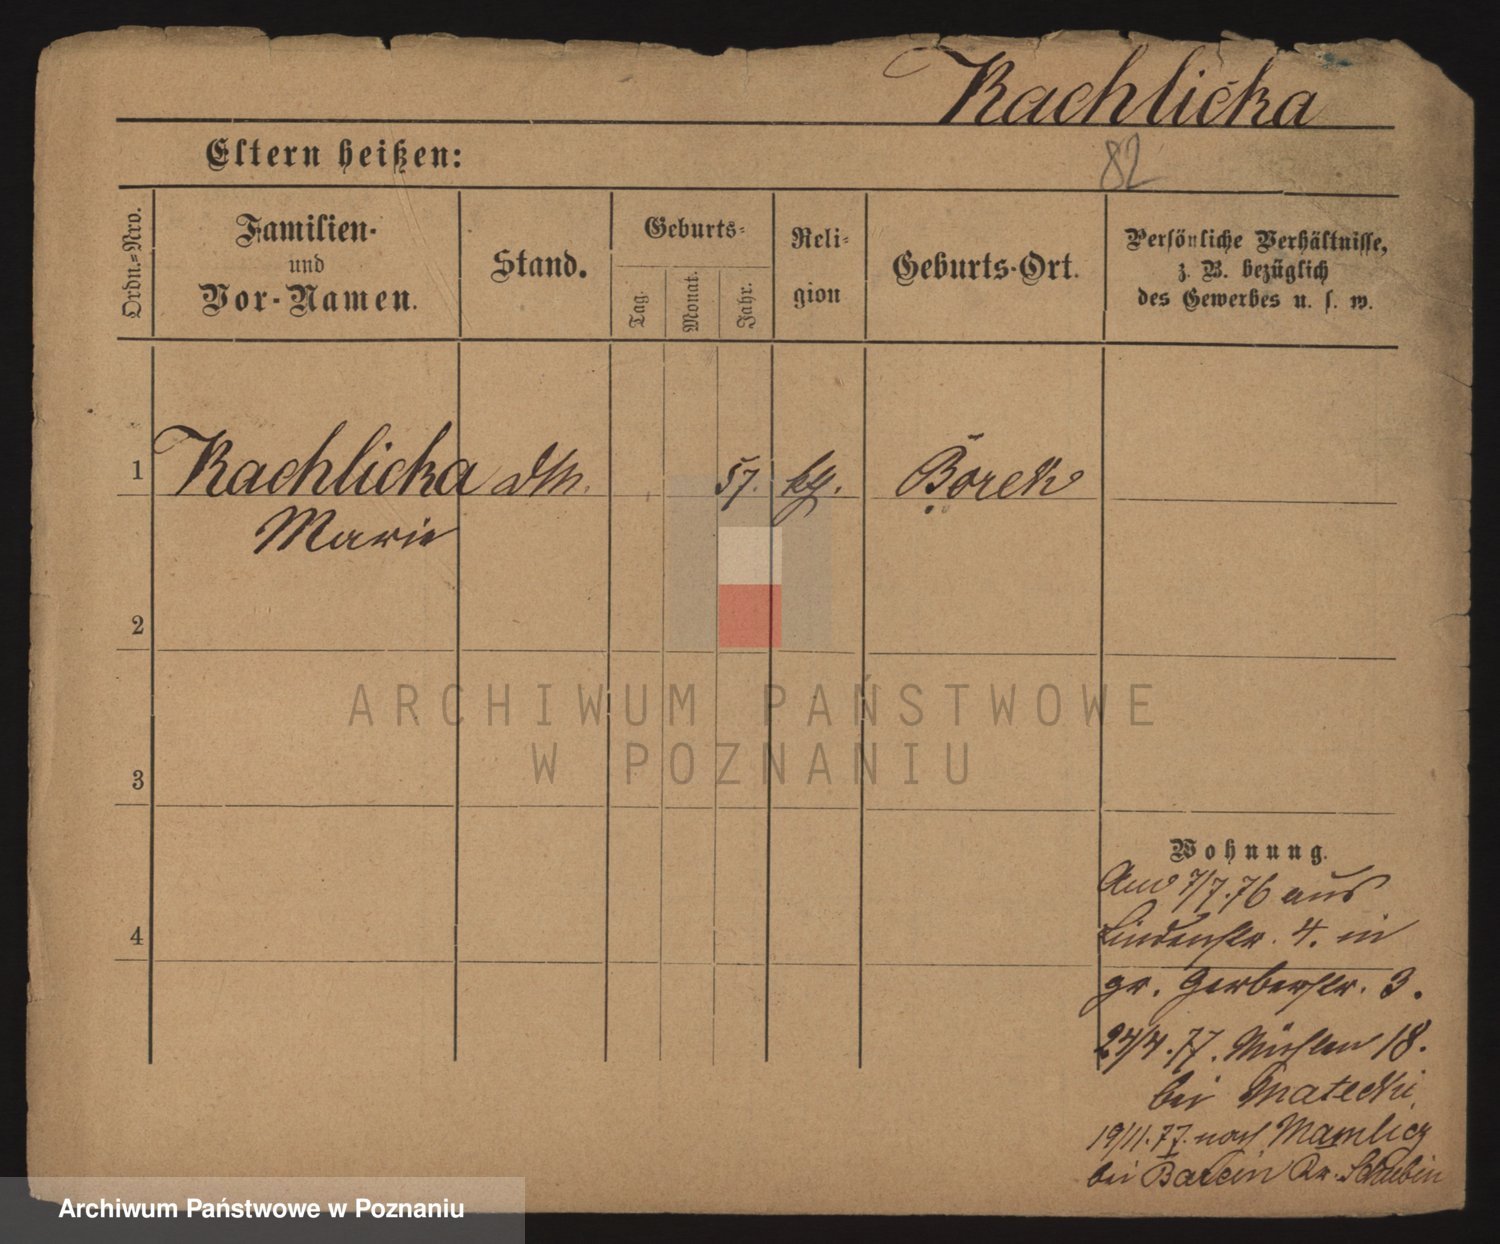 Rachlicka
Eltern heißen:
82
Ordn.-Nro.
Familien-
und
Vor-Namen.
Stand.
Geburts-
Tag.
Monat.
Jahr.
Reli-
gion
Geburts-Ort.
Persönliche Verhältnisse,
z. B. bezüglich
des Gewerbes u. s. w.
1
Rachlicka
57.
Borek
Marie
2
ARCHIWUM PAŃSTWOWE
W POZNANIU
3
Wohnung.
7/7.76 aus
4
Lindenstr. 4. in
gr. Gerberstr. 3.
24/4.77. Mühlen 18.
bei Matecki
19/11.77. nach Mamlicz
bei Barcin Kr. Schubin
Archiwum Państwowe w Poznaniu